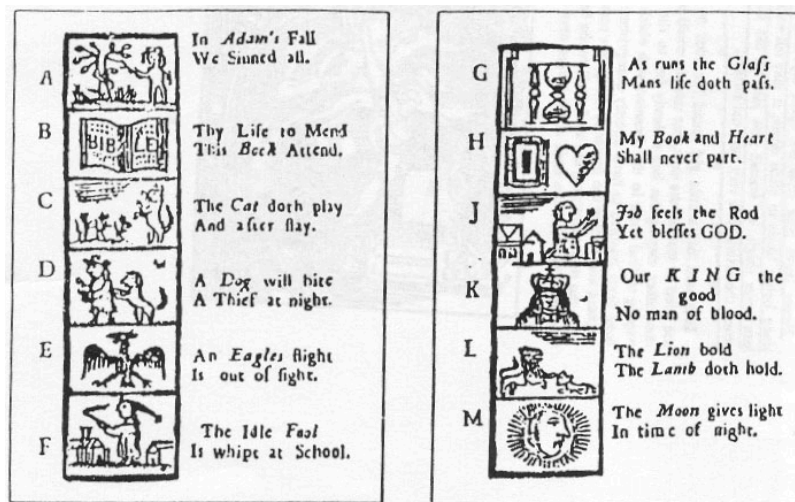 A
In Adam's Fall
We Sinned all.
B
BIB LE
Thy Life to Mend
This Book Attend.
C
The Cat doth play
And after ſlay.
D
A Dog will bite
A Thief at night.
E
An Eagles flight
Is out of ſight.
F
The Idle Fool
Is whipt at School.
G
As runs the Glaſs
Mans life doth paſs.
H
My Book and Heart
Shall never part.
J
Job feels the Rod
Yet bleſſes GOD.
K
Our KING the
good
No man of blood.
L
The Lion bold
The Lamb doth hold.
M
The Moon gives light
In time of night.